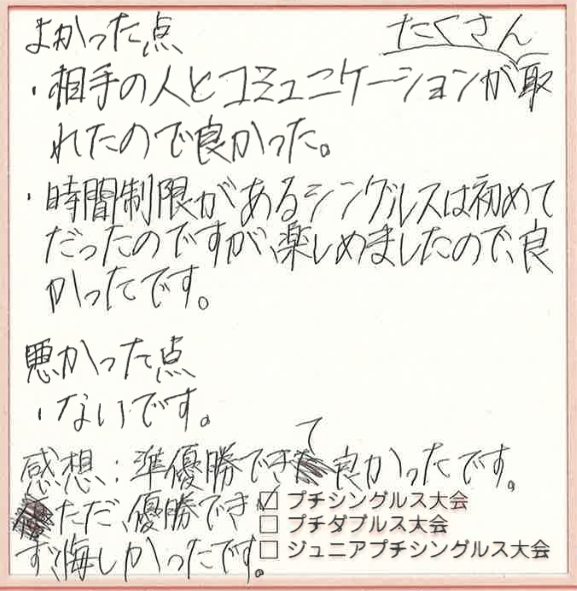 よかった点
・相手の人とたくさんコミュニケーションが取
れたので良かった。
・時間制限があるシングルスは初めて
だったのですが、楽しめましたので、良
かったです。
悪かった点
・ないです。
感想：準優勝できて良かったです。
ただ、優勝できず、悔しかったです。
☑ プチシングルス大会
☐ プチダブルス大会
☐ ジュニアプチシングルス大会